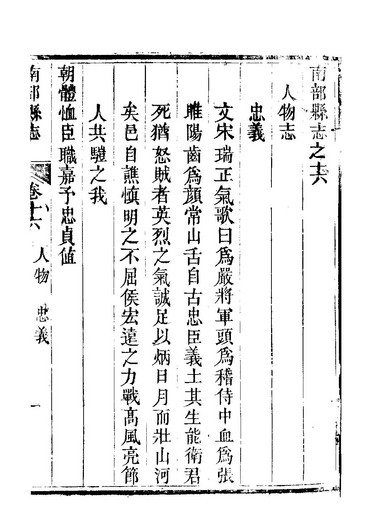 南部縣志之十六
人物志
忠義
文宋瑞正氣歌曰爲嚴將軍頭爲稽侍中血爲張
睢陽齒爲顏常山舌自古忠臣義士其生能衛君
死猶怒賊者英烈之氣誠足以炳日月而壯山河
矣邑自譙慎明之不屈侯宏達之力戰高風亮節
人共之我
朝體恤臣職嘉予忠貞值
南部縣志 卷十六 人物 忠義 一